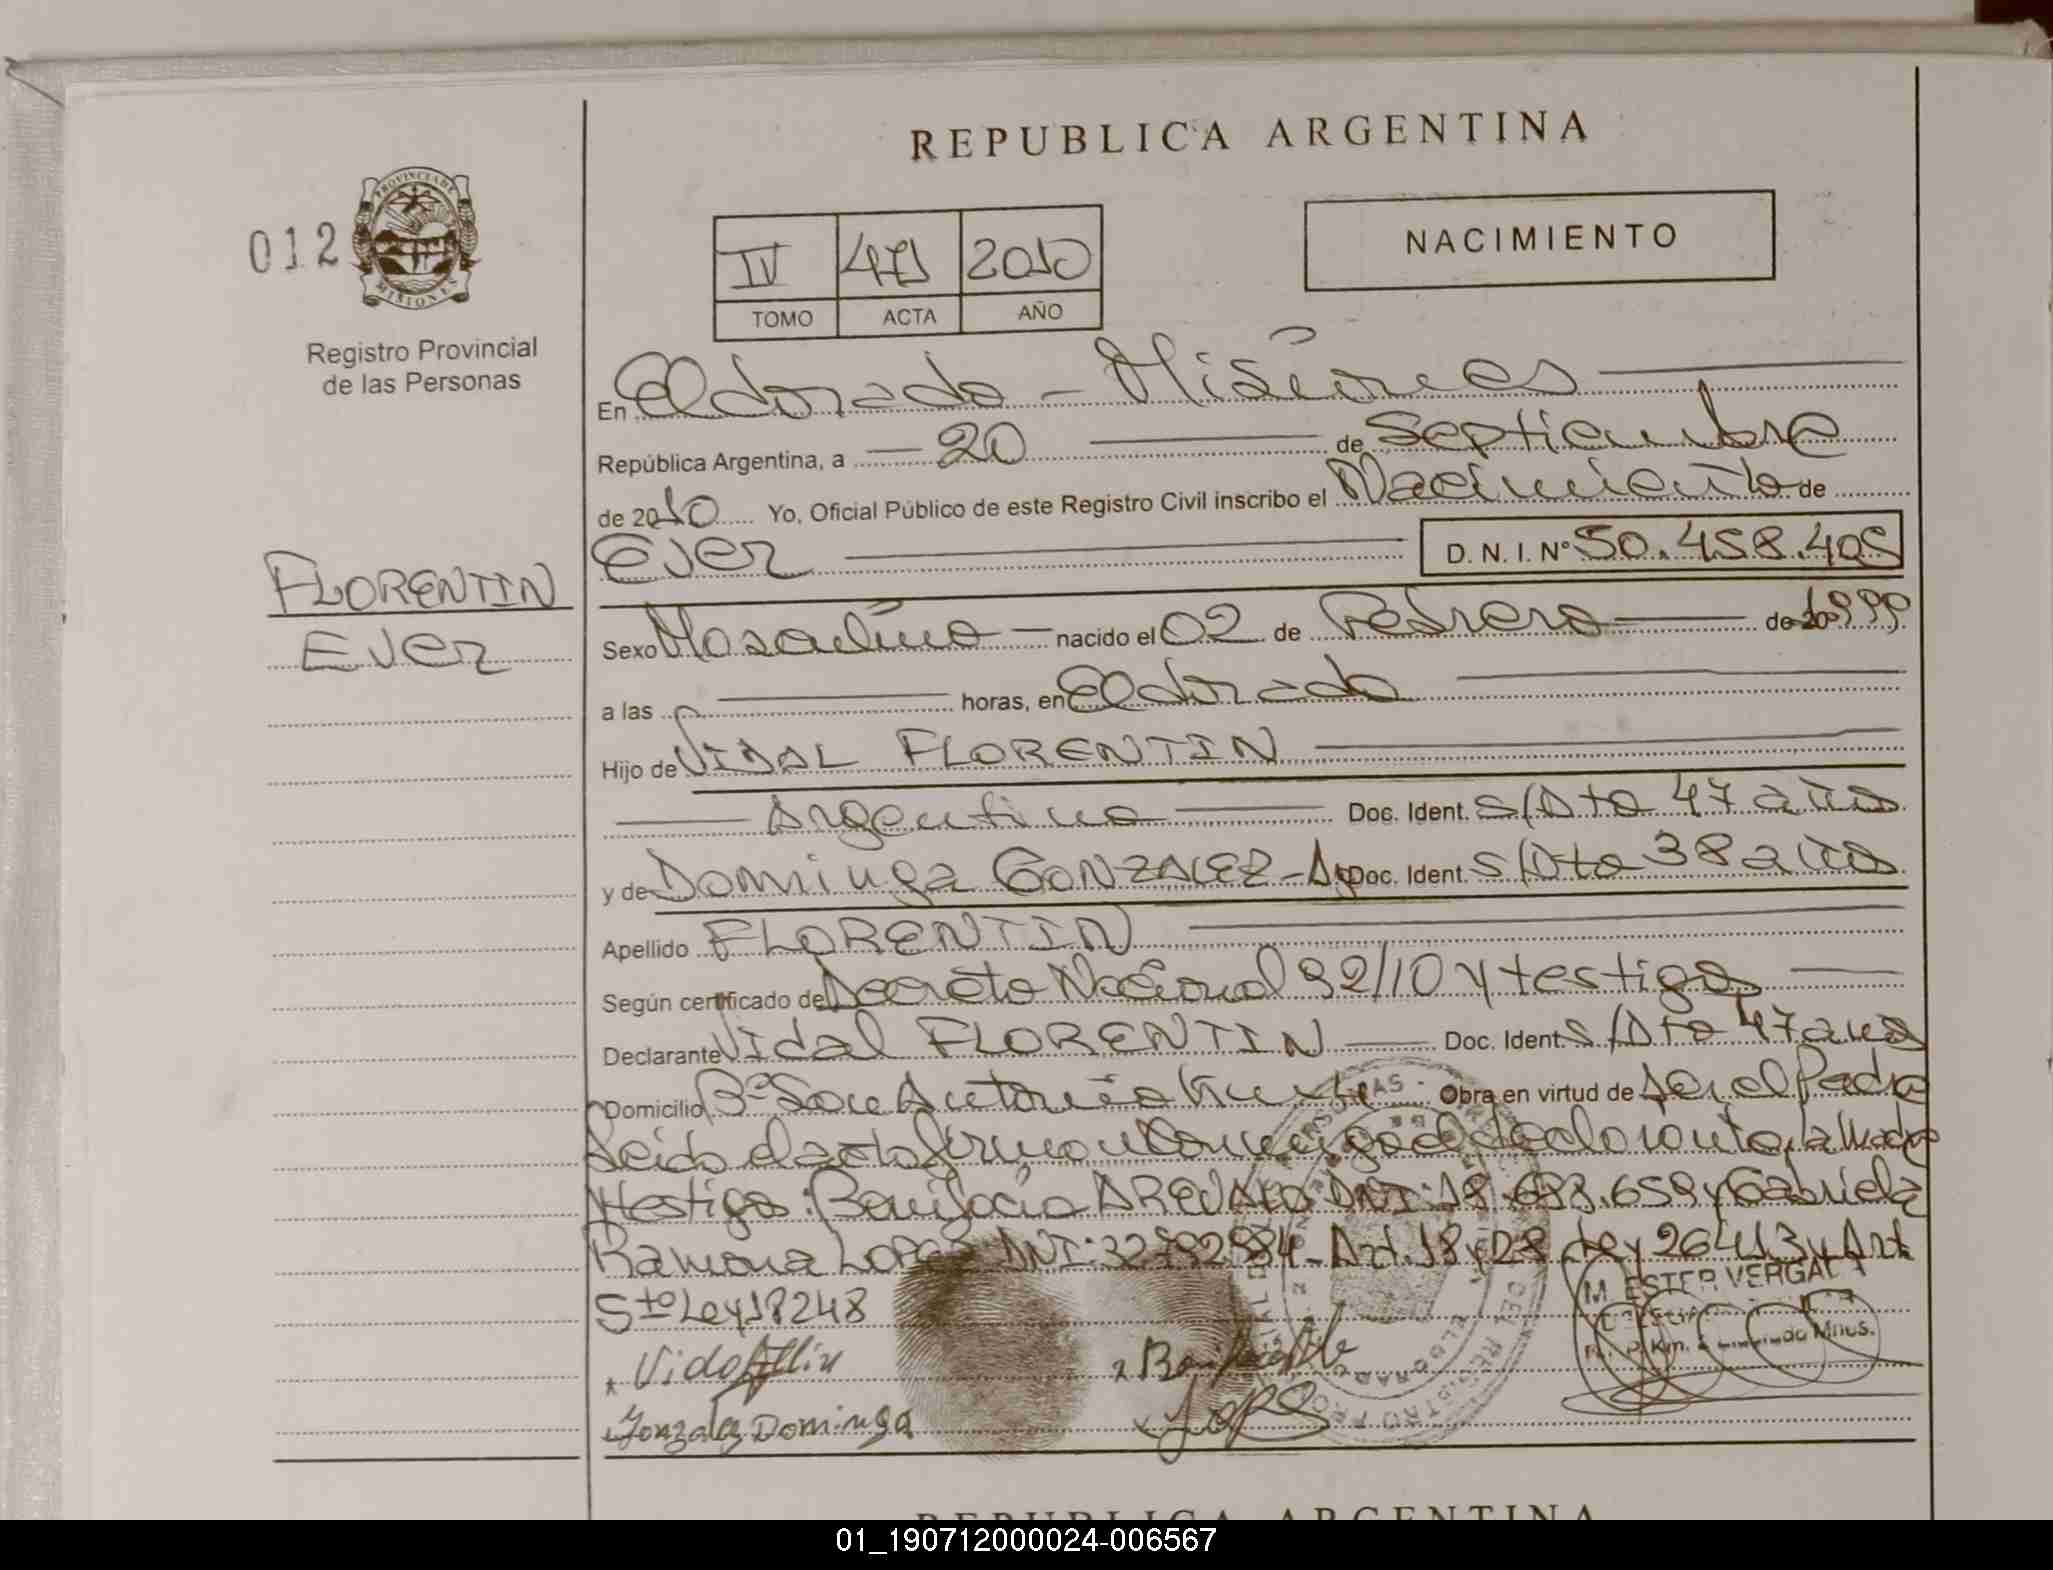 REPUBLICA ARGENTINA
012
PROVINCIA DE
MISIONES
Registro Provincial
de las Personas
IV 471 2010
TOMO ACTA AÑO
NACIMIENTO
FLORENTIN
Ejer
En Eldorado - Misiones
República Argentina, a 20 de Septiembre
de 2010 Yo, Oficial Público de este Registro Civil inscribo el Nacimiento de
Ejer D. N. I. N° 50.458.405
Sexo Masculino - nacido el 02 de Febrero de 20 1999
a las horas, en Eldorado
Hijo de VIDAL FLORENTIN
Argentino Doc. Ident. S/Dto 47 años
y de Dominga GONZALEZ - Arg Doc. Ident. S/Dto 38 años
Apellido FLORENTIN
Según certificado de Decreto Nacional 92/10 y testigos
Declarante Vidal FLORENTIN Doc. Ident. S/Dto 47 años
Domicilio Bº San Antonio Obra en virtud de Ser el Padre
Leido el acta firman conmigo el declarante, la Madre
y testigos: Bonifacio AREVALO DNI: y Gabriela
Ramona LOPEZ DNI: - Art. 18 y 28 Ley 26413 y Art
5to Ley 18248
Vidal
Gonzalez Dominga
M. ESTER VERGARA
REPUBLICA ARGENTINA
01_190712000024-006567